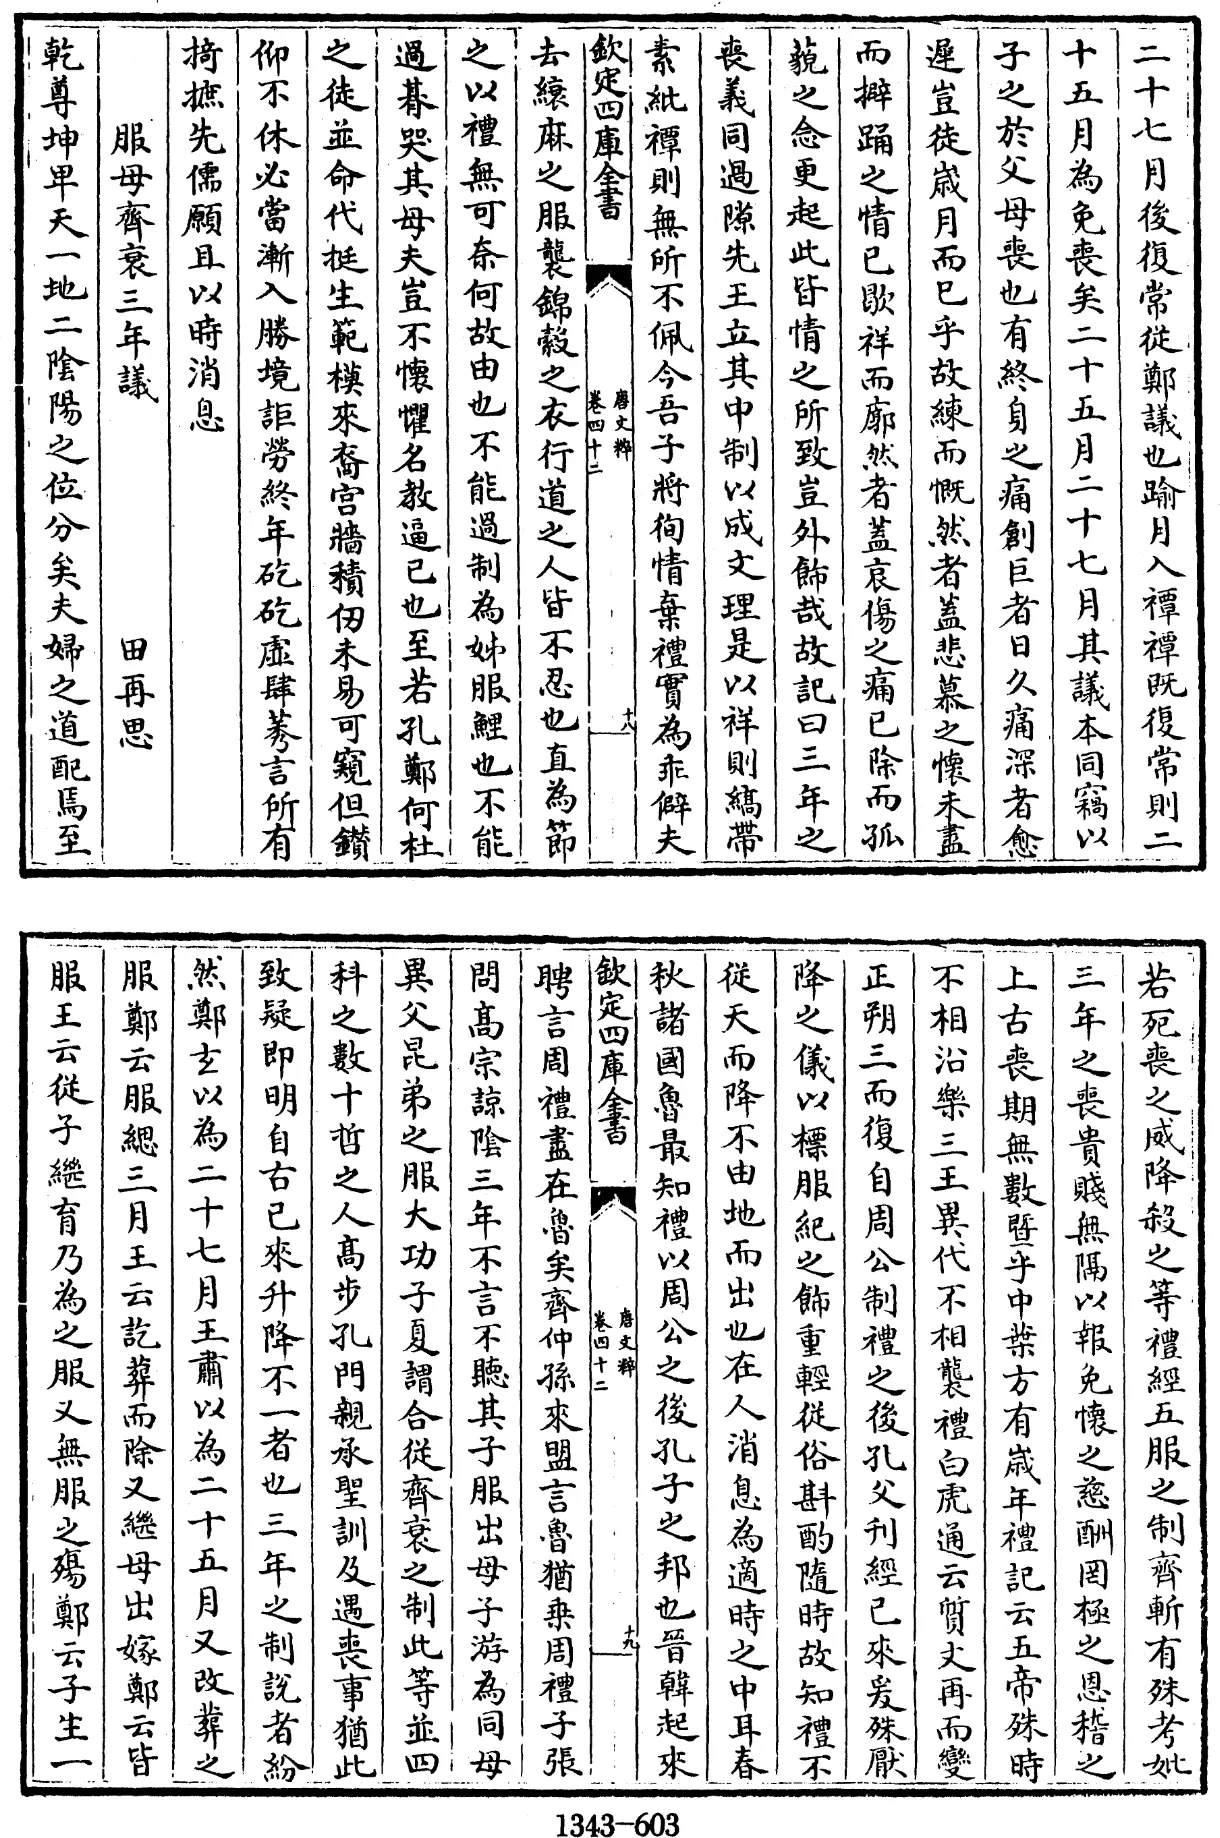 二十七月後復常從鄭議也踰月入禫禫既復常則二
十五月為免喪矣二十五月二十七月其議本同竊以
子之於父母喪也有終身之痛創巨者日久痛深者愈
遲豈徒歲月而已乎故練而慨然者蓋悲慕之懷未盡
而擗踊之情已歇祥而廓然者蓋哀傷之痛已除而孤
藐之念更起此皆情之所致豈外飾哉故記曰三年之
喪義同過隙先王立其中制以成文理是以祥則縞帶
素紕禫則無所不佩今吾子將徇情棄禮實為乖僻夫
欽定四庫全書
唐文粹
卷四十二
十八
去縗麻之服襲錦縠之衣行道之人皆不忍也直為節
之以禮無可奈何故由也不能過制為姊服鯉也不能
過朞哭其母夫豈不懷懼名教逼已也至若孔鄭何杜
之徒並命代挺生範模來裔宫牆積仞未易可窺但鑚
仰不休必當漸入勝境詎勞終年矻矻虛肆莠言所有
掎摭先儒願且以時消息
服母齊衰三年議
田再思
乾尊坤卑天一地二陰陽之位分矣夫婦之道配焉至
若死喪之威降殺之等禮經五服之制齊斬有殊考妣
三年之喪貴賤無隔以報免懷之慈酬罔極之恩稽之
上古喪期無數暨乎中葉方有歲年禮記云五帝殊時
不相沿樂三王異代不相襲禮白虎通云質文再而變
正朔三而復自周公制禮之後孔父刋經已來爰殊厭
降之儀以標服紀之飾重輕從俗斟酌隨時故知禮不
從天而降不由地而出也在人消息為適時之中耳春
秋諸國魯最知禮以周公之後孔子之邦也晉韓起來
欽定四庫全書
唐文粹
卷四十二
十九
聘言周禮盡在魯矣齊仲孫來盟言魯猶秉周禮子張
問高宗諒陰三年不言不聽其子服出母子游為同母
異父昆弟之服大功子夏謂合從齊衰之制此等並四
科之數十哲之人高步孔門親承聖訓及遇喪事猶此
致疑即明自古已來升降不一者也三年之制說者紛
然鄭玄以為二十七月王肅以為二十五月又改葬之
服鄭云服緦三月王云訖葬而除又繼母出嫁鄭云皆
服王云從子繼育乃為之服又無服之殤鄭云子生一
1343-603